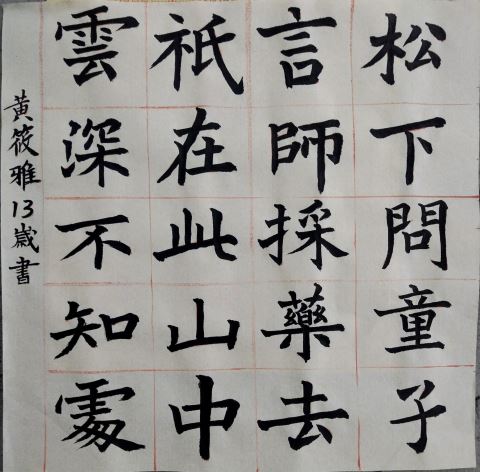 松下問童子
言師採藥去
祇在此山中
雲深不知處
黃筱雅13歲書